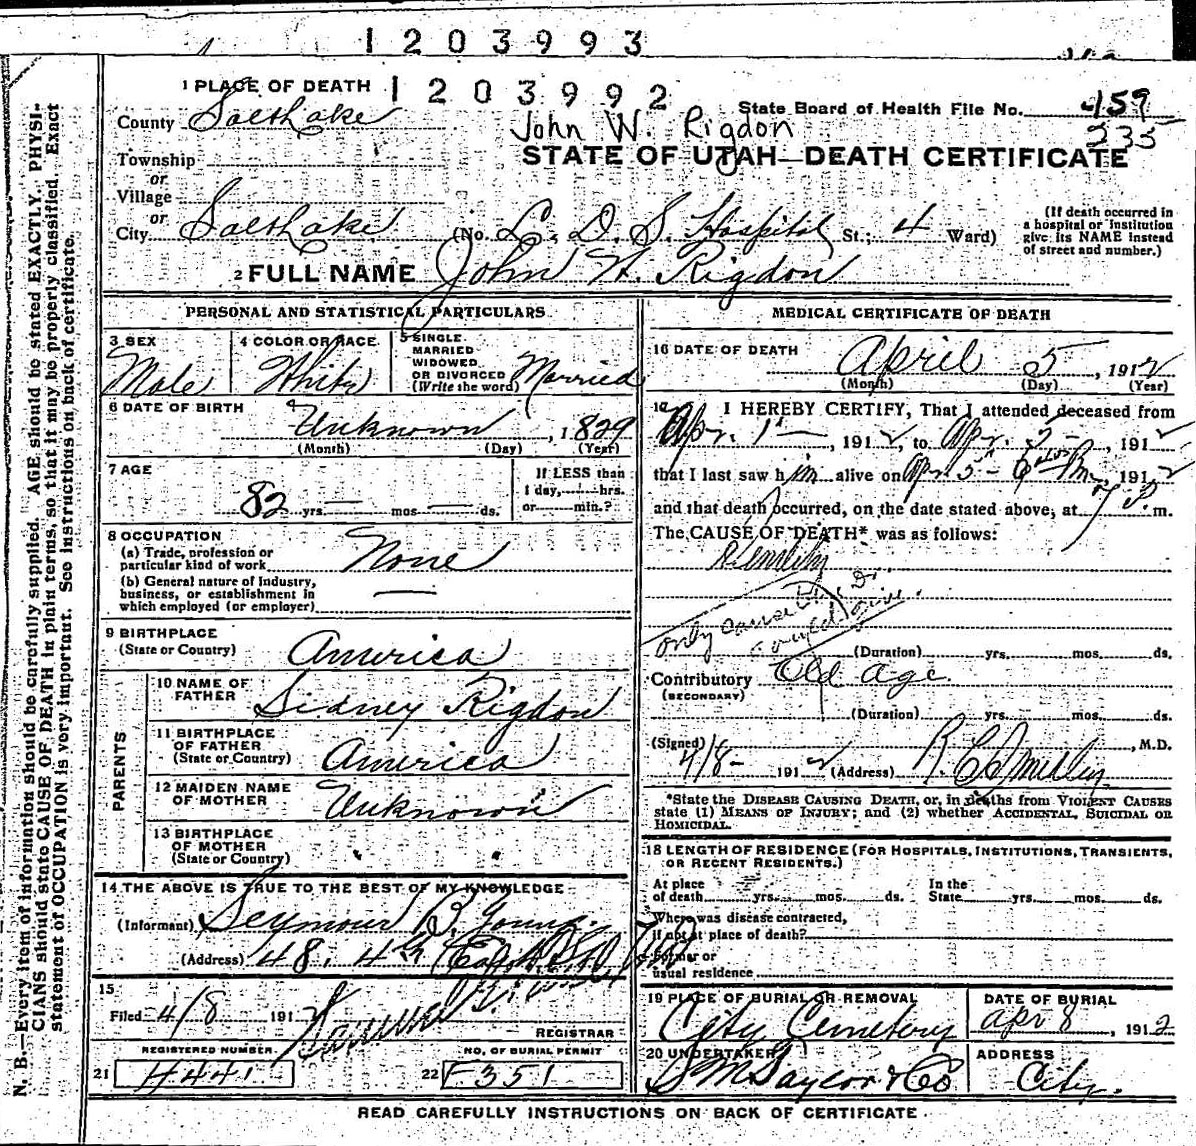 1203993
1 PLACE OF DEATH 1203992
State Board of Health File No. 459
County Salt Lake
John W. Rigdon
235
STATE OF UTAH—DEATH CERTIFICATE
Township
or
Village
or
City Salt Lake (No. L. D. S. Hospital St.; 4 Ward)
(If death occurred in
a hospital or institution
give its NAME instead
of street and number.)
2 FULL NAME John W. Rigdon
PERSONAL AND STATISTICAL PARTICULARS
3 SEX
Male
4 COLOR OR RACE
White
5 SINGLE
MARRIED
WIDOWED
OR DIVORCED
(Write the word) Married
6 DATE OF BIRTH
Unknown, 1829
(Month) (Day) (Year)
7 AGE
82 yrs. — mos. — ds.
If LESS than
1 day, hrs.
or min.?
8 OCCUPATION
(a) Trade, profession or
particular kind of work None
(b) General nature of Industry,
business, or establishment in
which employed (or employer) —
9 BIRTHPLACE
(State or Country) America
PARENTS
10 NAME OF
FATHER Sidney Rigdon
11 BIRTHPLACE
OF FATHER
(State or Country) America
12 MAIDEN NAME
OF MOTHER Unknown
13 BIRTHPLACE
OF MOTHER
(State or Country) " " "
14 THE ABOVE IS TRUE TO THE BEST OF MY KNOWLEDGE
(Informant) Seymour B. Young
(Address) 48. 4th East
15
Filed 4/8 191
REGISTRAR
REGISTERED NUMBER.
21 4441
NO. OF BURIAL PERMIT
22 F351
MEDICAL CERTIFICATE OF DEATH
16 DATE OF DEATH April 5, 1912
(Month) (Day) (Year)
17 I HEREBY CERTIFY, That I attended deceased from
Apr. 1st, 1912, to Apr. 5, 1912
that I last saw him alive on Apr 5 1912
and that death occurred, on the date stated above, at 7 P. m.
The CAUSE OF DEATH* was as follows:
only cause
(Duration) yrs. mos. ds.
Contributory Old Age
(SECONDARY)
(Duration) yrs. mos. ds.
(Signed) M.D.
4/8- 1912 (Address)
*State the DISEASE CAUSING DEATH, or, in deaths from VIOLENT CAUSES
state (1) MEANS OF INJURY; and (2) whether ACCIDENTAL, SUICIDAL OR
HOMICIDAL.
18 LENGTH OF RESIDENCE (FOR HOSPITALS, INSTITUTIONS, TRANSIENTS,
OR RECENT RESIDENTS.)
At place
of death yrs. mos. ds.
In the
State yrs. mos. ds.
Where was disease contracted,
if not at place of death?
Former or
usual residence
19 PLACE OF BURIAL OR REMOVAL
City Cemetery
DATE OF BURIAL
Apr 8, 1912
20 UNDERTAKER
S M Taylor & Co
ADDRESS
City.
READ CAREFULLY INSTRUCTIONS ON BACK OF CERTIFICATE
N. B.—Every item of information should be carefully supplied. AGE should be stated EXACTLY. PHYSI-
CIANS should state CAUSE OF DEATH in plain terms, so that it may be properly classified. Exact
statement of OCCUPATION is very important. See instructions on back of certificate.